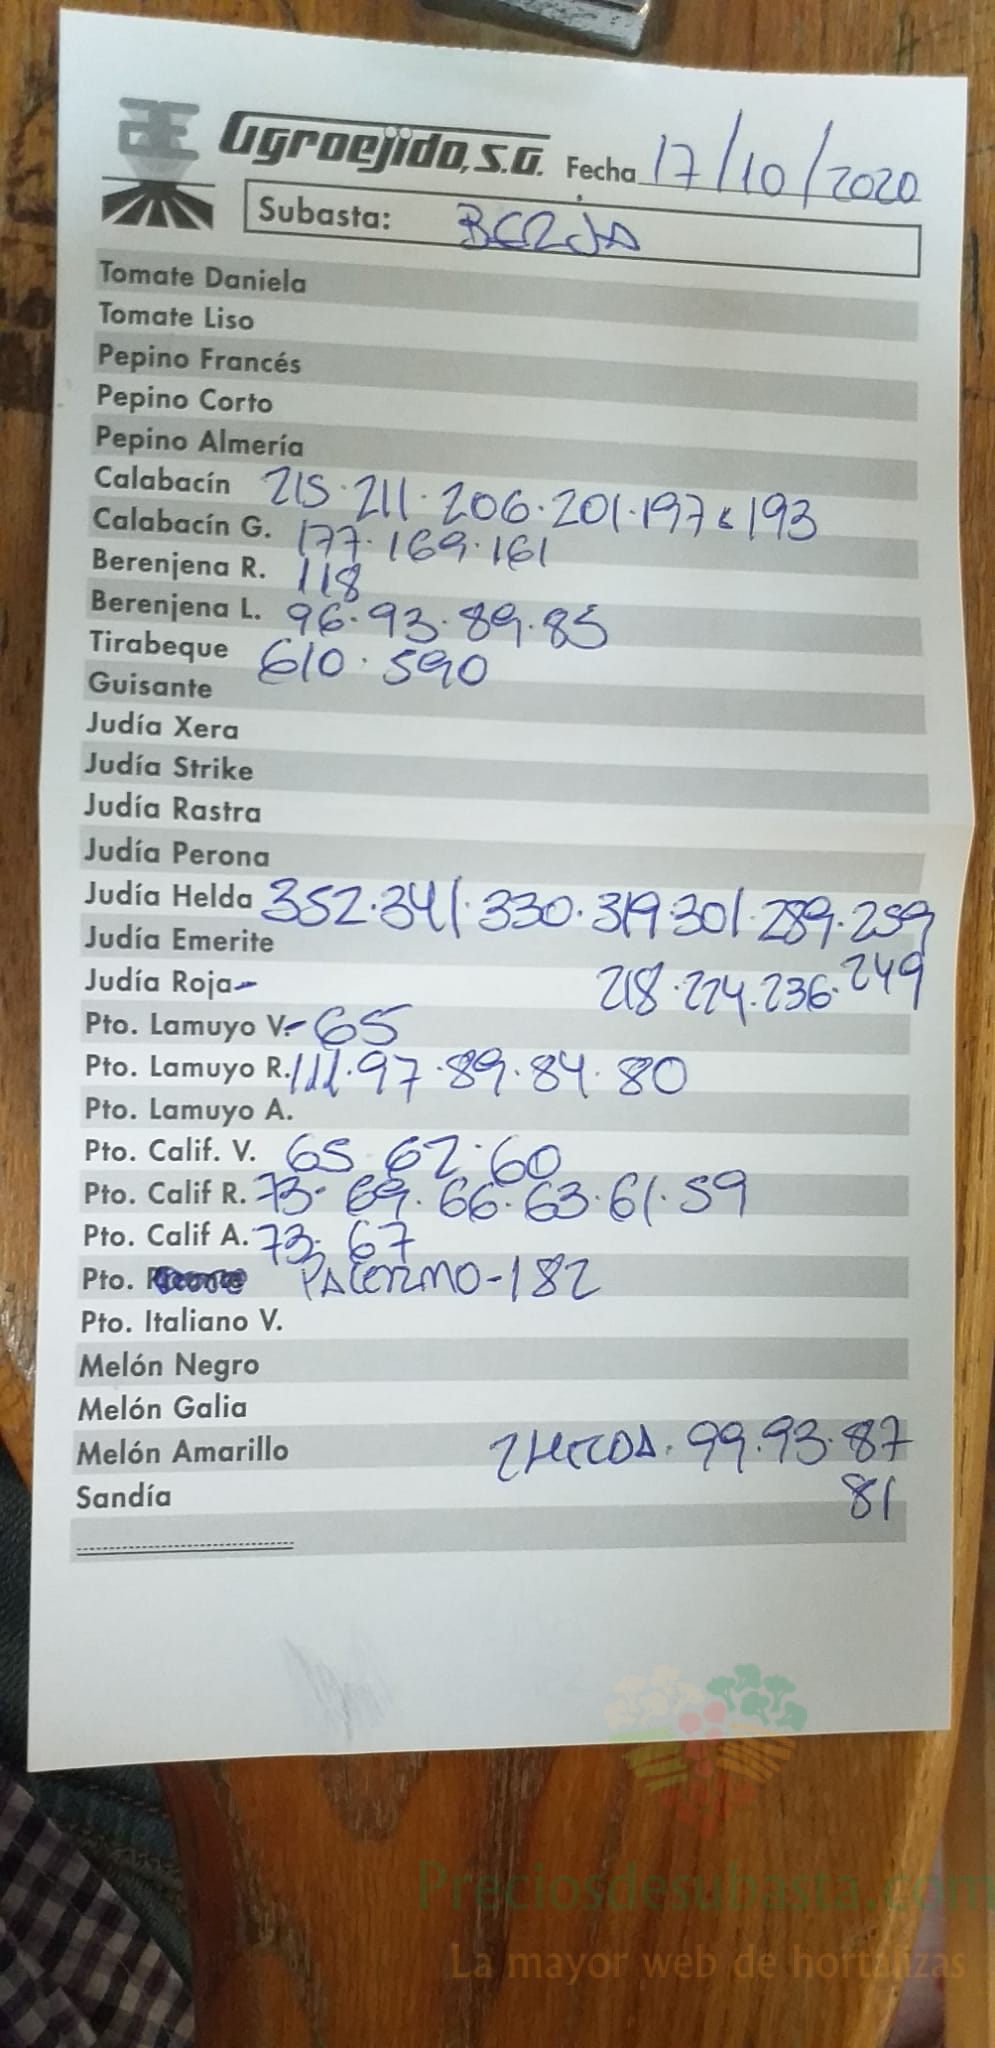 Agroejido, S.A. Fecha 17/10/2020
Subasta: BERJA
Tomate Daniela
Tomate Liso
Pepino Francés
Pepino Corto
Pepino Almería
Calabacín 215.211.206.201.197 193
Calabacín G. 177.169.161
Berenjena R. 118
Berenjena L. 96.93.89.85
Tirabeque 610.590
Guisante
Judía Xera
Judía Strike
Judía Rastra
Judía Perona
Judía Helda 352.341.330.319.301.289.259
Judía Emerite
Judía Roja- 218.224.236.249
Pto. Lamuyo V.-65
Pto. Lamuyo R. 111.97.89.84.80
Pto. Lamuyo A.
Pto. Calif. V. 65 62.60
Pto. Calif R. 73.69.66.63.61.59
Pto. Calif A. 73.67
Pto. PALERMO-182
Pto. Italiano V.
Melón Negro
Melón Galia
Melón Amarillo 99.93.87
Sandía 81
Preciosdesubasta.com
La mayor web de hortalizas